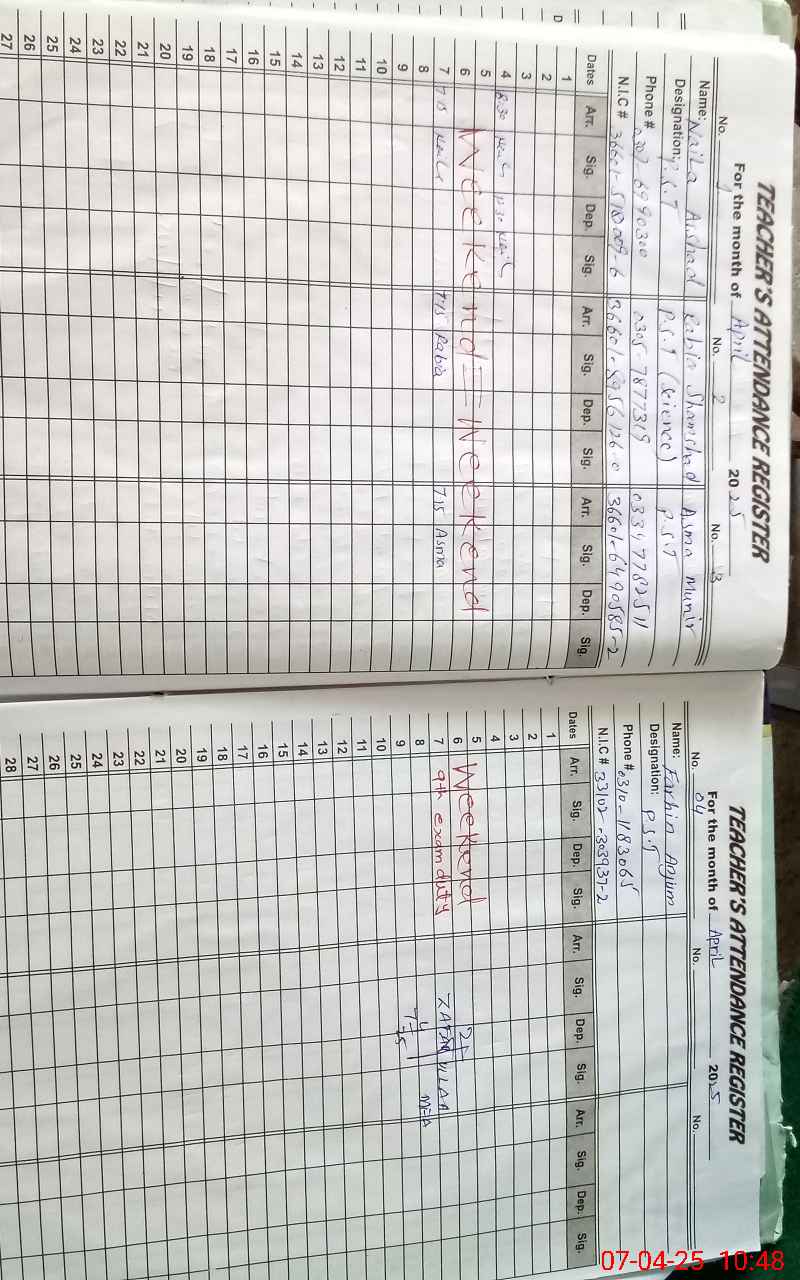 TEACHER'S ATTENDANCE REGISTER
For the month of April 2025
No. 1 No. 2 No. 3
Name: Naila Arshad Rabia Shamshad Asma Munir
Designation: P.S.T P.S.T (Science) P.S.T
Phone # 0307-6990300 0305-7877319 0334 7782511
N.I.C # 36601-5180009-6 36601-8956126-0 36601-6490585-2
Dates Arr. Sig. Dep. Sig. Arr. Sig. Dep. Sig. Arr. Sig. Dep. Sig.
1
2
3
4 8:30 11:30
5
6 Weekend = Weekend
7 7:15 7:15 Rabia 7:15 Asma
8
9
10
11
12
13
14
15
16
17
18
19
20
21
22
23
24
25
26
27
TEACHER'S ATTENDANCE REGISTER
For the month of April 2025
No. 04 No. No.
Name: Farhin Anjum
Designation: P.S.T
Phone # 0310-1183065
N.I.C # 33102-303937-2
Dates Arr. Sig. Dep. Sig. Arr. Sig. Dep. Sig. Arr. Sig. Dep. Sig.
1
2
3
4
5
6 Weekend
7 9th exam duty
8
9
10
11
12
13
14
15
16
17
18
19
20
21
22
23
24
25
26
27
28
07-04-25 10:48